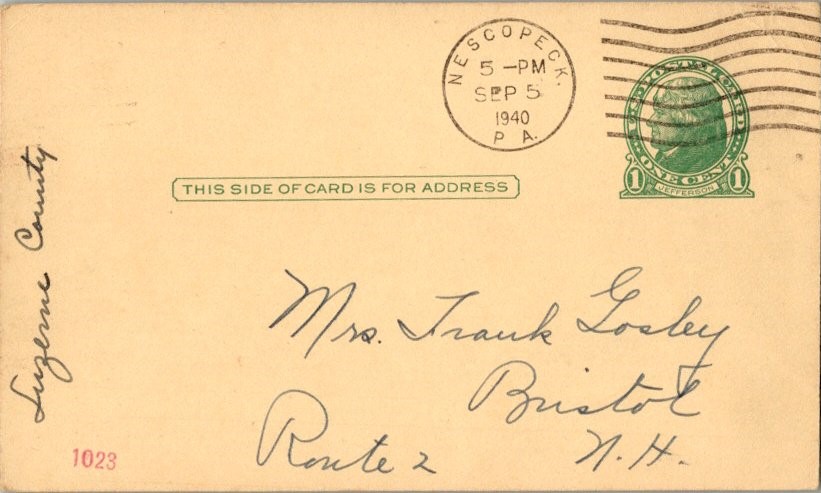 NESCOPECK.
5 -PM
SEP 5
1940
PA.
U.S. POSTAL CARD
ONE CENT
1 JEFFERSON 1
THIS SIDE OF CARD IS FOR ADDRESS
Luzerne County
Mrs. Frank Gosley
Bristol
Route 2 N.H.
1023